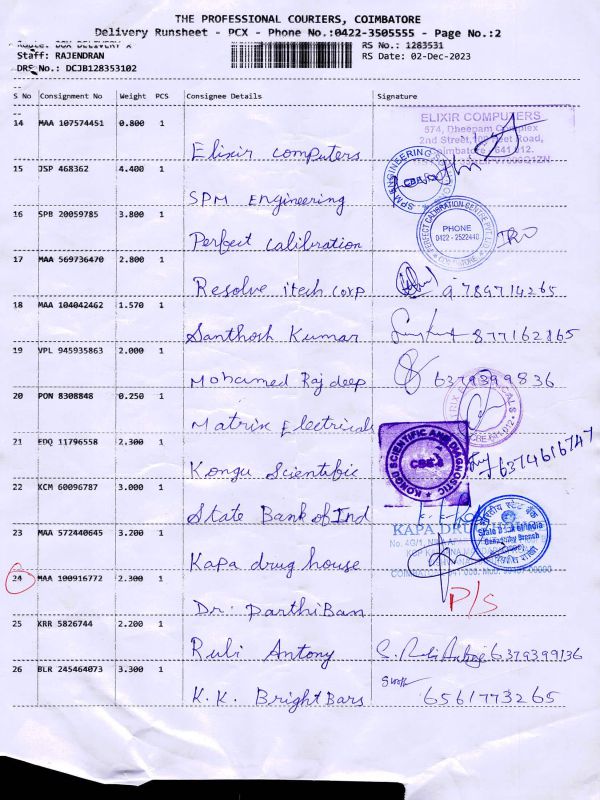 THE PROFESSIONAL COURIERS, COIMBATORE
Delivery Runsheet - PCX - Phone No.:0422-3505555 - Page No.:2
RS No.: 1283531
Staff: RAJENDRAN RS Date: 02-Dec-2023
DRS No.: DCJB128353102
S No Consignment No Weight PCS Consignee Details Signature
14 MAA 107574451 0.800 1
ELIXIR COMPUTERS
574, Dheepam Complex
2nd Street, 100 Feet Road,
Coimbatore - 641 012.
Elixir computers
15 JSP 468362 4.400 1
SPM ENGINEERING
CBE
SPM Engineering
16 SPB 20059785 3.800 1
PERFECT CALIBRATION CENTRE PVT LTD
PHONE
0422 - 2522440
Perfect calibration
17 MAA 569736470 2.800 1
Resolve itech corp 9789714265
18 MAA 104042462 1.570 1
Santhosh Kumar 877162865
19 VPL 945935863 2.000 1
Mohamed Raj deep 6379399836
20 PON 8308848 0.250 1
Matrix Electricals
21 EDQ 11796558 2.300 1
KONGU SCIENTIFIC AND DIAGNOSTIC
CBE
Kongu Scientific 6374616747
22 KCM 60096787 3.000 1
State Bank of Ind
State Bank of India
भारतीय स्टेट बैंक
23 MAA 572440645 3.200 1
KAPA DRUG
Kapa drug house
24 MAA 100916772 2.300 1
P/S
Dr. Parthiban
25 KRR 5826744 2.200 1
Rubi Antony 6379399136
26 BLR 245464073 3.300 1
K.K. Bright Bars 6561773265